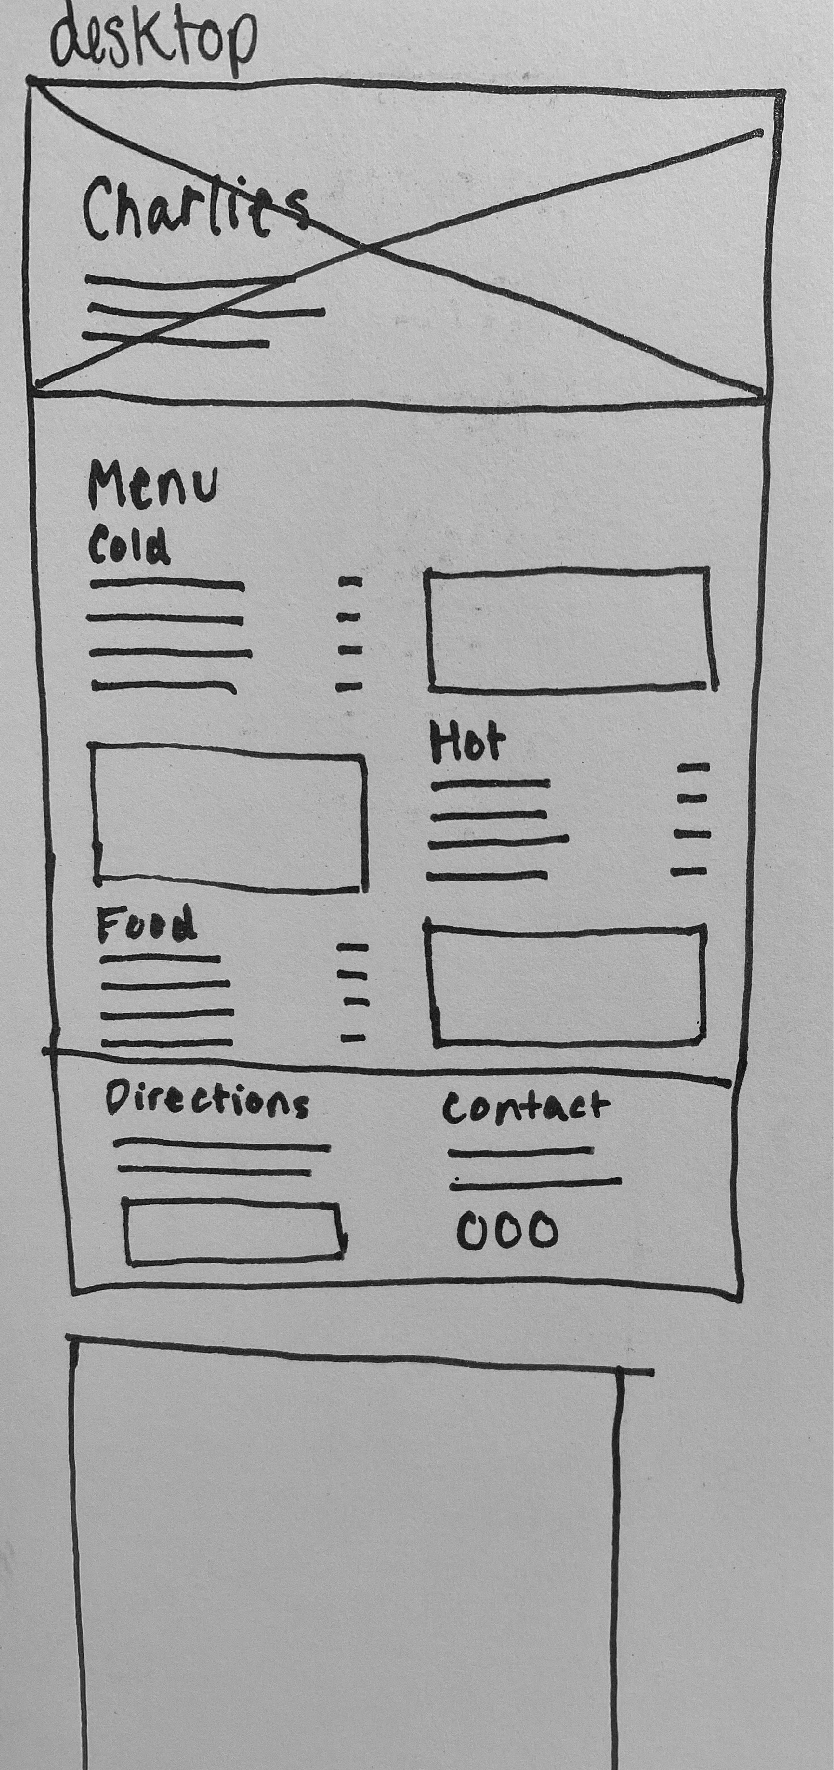 desktop
Charlies
Menu
Cold
Hot
Food
Directions
Contact